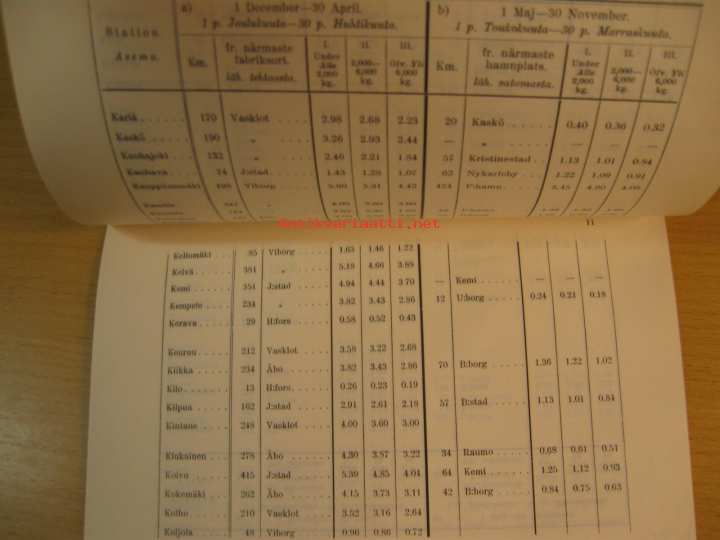 a) 1 December—30 April. b) 1 Maj—30 November.
1 p. Joulukuuta—30 p. Huhtikuuta. 1 p. Toukokuuta—30 p. Marraskuuta.
Station. Km. fr. närmaste fabriksort. I. II. III. Km. fr. närmaste hamnplats. I. II. III.
Asema. läh. tehtaasta. Under Alle 2,000 kg. 2,000—6,000 kg. Öfv. Yli 6,000 kg. läh. satamasta. Under Alle 2,000 kg. 2,000—6,000 kg. Öfv. Yli 6,000 kg.
Karlä 179 Vasklot 2.98 2.68 2.23 20 Kaskö 0.40 0.36 0.32
Kaskö 190 „ 3.26 2.93 2.44 — „ — — —
Kauhajoki 132 „ 2.46 2.21 1.84 57 Kristinestad 1.13 1.01 0.84
Kauhava 74 J:stad 1.43 1.29 1.07 63 Nykarleby 1.22 1.09 0.91
Viborg 4.42 P:hamn
antikvariaatti.net
11
Kellomäki 85 Viborg 1.63 1.46 1.22
Kelvä 381 „ 5.18 4.66 3.89
Kemi 351 J:stad 4.94 4.44 3.70 — Kemi — — —
Kempele 234 „ 3.82 3.43 2.86 12 U:borg 0.24 0.21 0.18
Kerava 29 H:fors 0.58 0.52 0.43
Keuruu 212 Vasklot 3.58 3.22 2.68
Kiikka 234 Åbo 3.82 3.43 2.86 70 B:borg 1.36 1.22 1.02
Kilo 13 H:fors 0.26 0.23 0.19
Kilpua 162 J:stad 2.91 2.61 2.18 57 B:stad 1.13 1.01 0.84
Kintaus 248 Vasklot 4.00 3.60 3.00
Kiukainen 278 Åbo 4.30 3.87 3.22 34 Raumo 0.68 0.61 0.51
Koivu 415 J:stad 5.39 4.85 4.04 64 Kemi 1.25 1.12 0.93
Kokemäki 262 Åbo 4.15 3.73 3.11 42 B:borg 0.84 0.75 0.63
Kolho 210 Vasklot 3.52 3.16 2.64
Koljola 48 Viborg 0.96 0.86 0.72